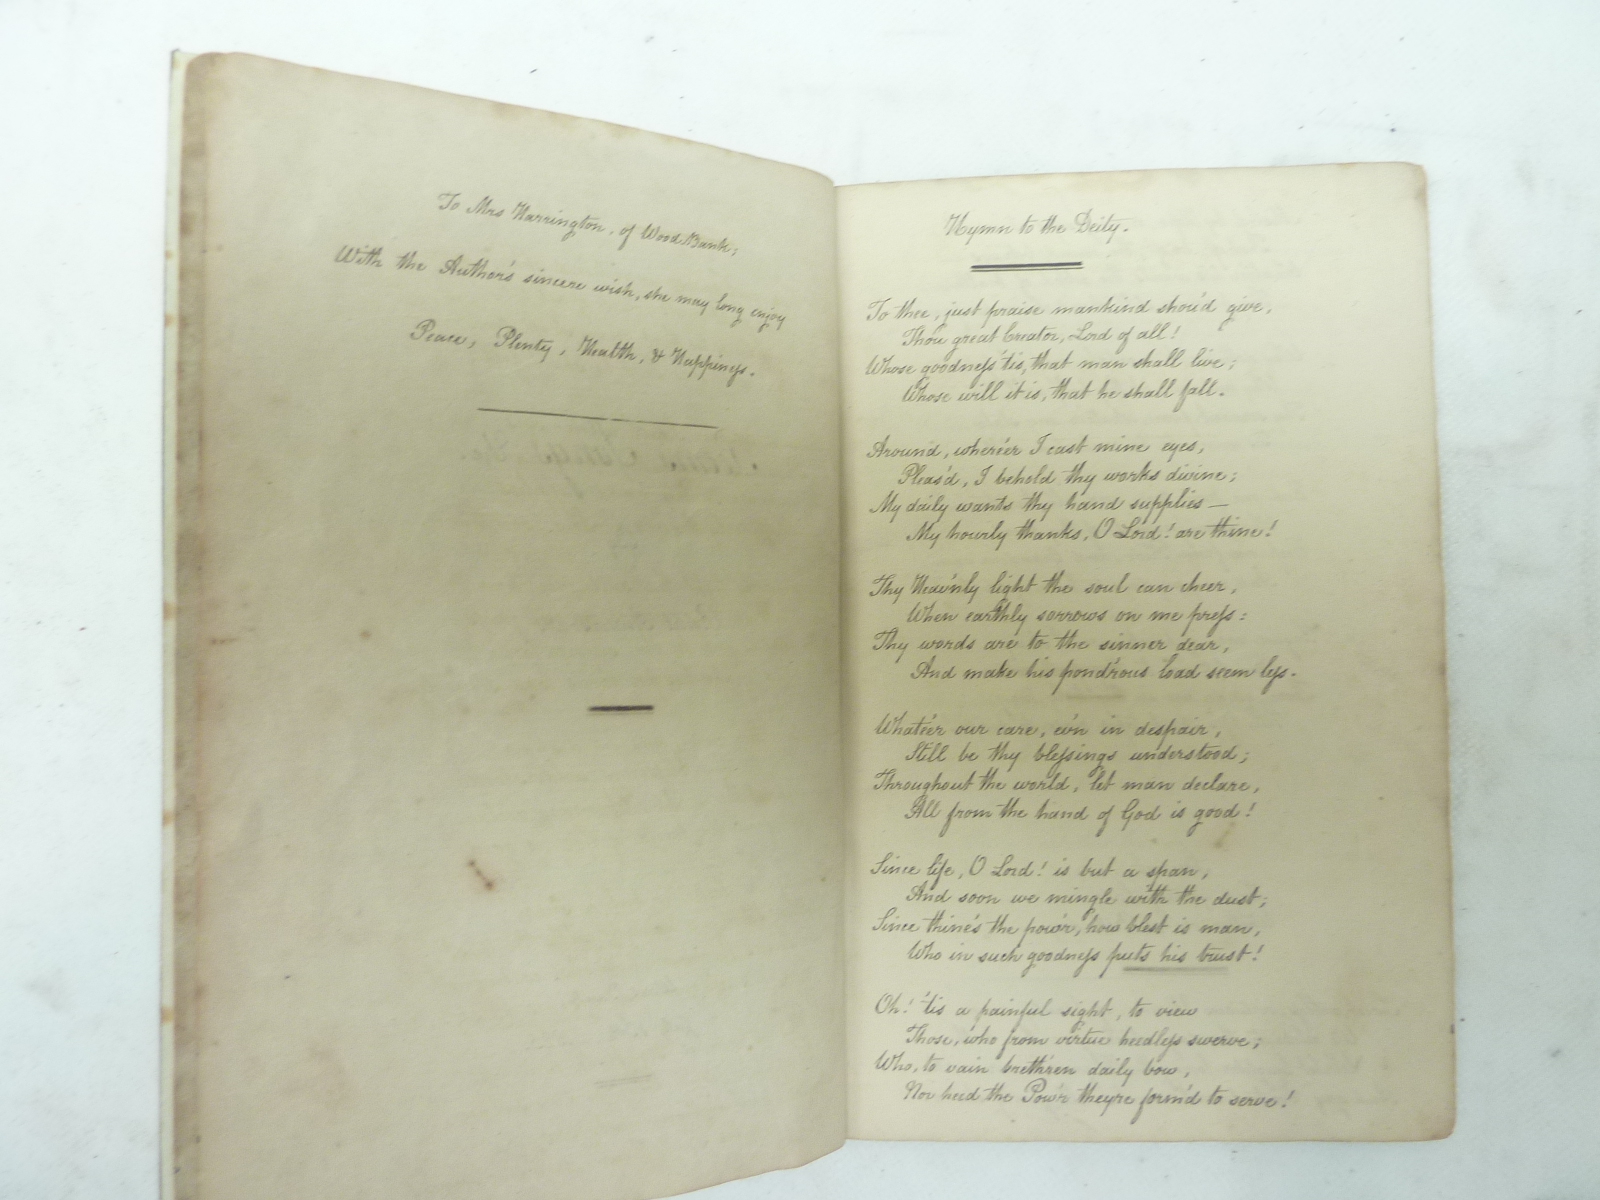 To Mrs Harrington, of Wood Bank;
With the Author's sincere wish, she may long enjoy
Peace, Plenty, Health, & Happiness.
Hymn to the Deity.
To thee, just praise mankind shou'd give,
Thou great Creator, Lord of all!
Whose goodness 'tis, that man shall live;
Whose will it is, that he shall fall.
Around, where'er I cast mine eyes,
Pleas'd, I behold thy works divine;
My daily wants thy hand supplies —
My hourly thanks, O Lord! are thine!
Thy Heav'nly light the soul can cheer,
When earthly sorrows on me press:
Thy words are to the sinner dear,
And make his pond'rous load seem less.
Whate'er our care, e'en in despair,
Still be thy blessings understood;
Throughout the world, let man declare,
All from the hand of God is good!
Since life, O Lord! is but a span,
And soon we mingle with the dust;
Since thine's the pow'r, how blest is man,
Who in such goodness puts his trust!
Oh! 'tis a painful sight, to view
Those, who from virtue heedless swerve;
Who, to vain brethren daily bow,
Nor heed the Pow'r they're form'd to serve!